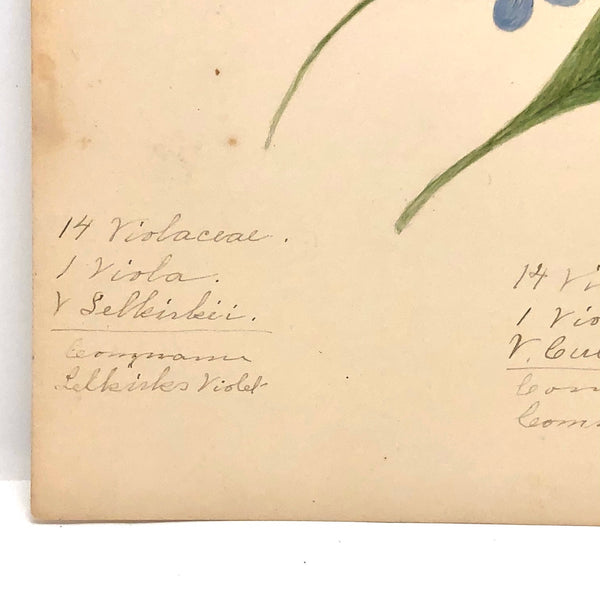 14 Violaceae.
1 Viola.
V Selkirkii.
Com name
Selkirks Violet
14 Vi
1 Vio
V. Cu
Com
Comm